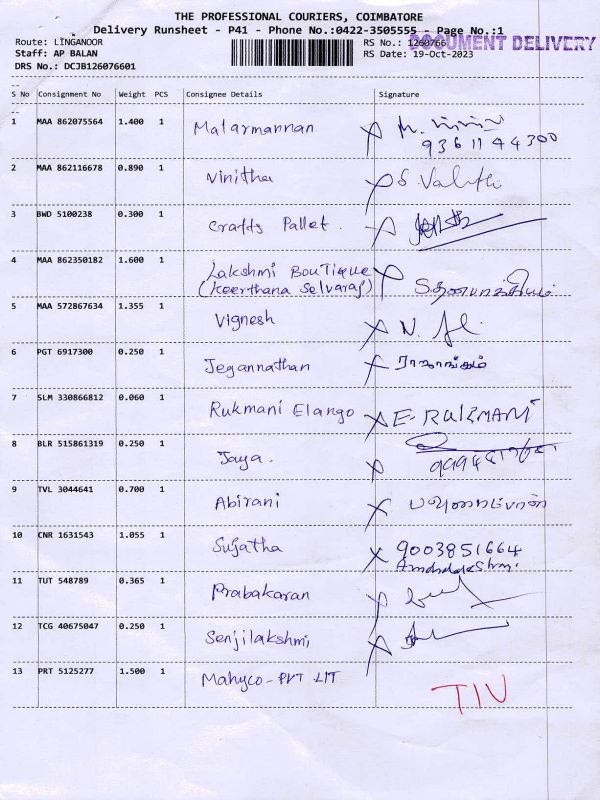 THE PROFESSIONAL COURIERS, COIMBATORE
Delivery Runsheet - P41 - Phone No.:0422-3505555 - Page No.:1
Route: LINGANOOR RS No.: 1260766 DOCUMENT DELIVERY
Staff: AP BALAN RS Date: 19-Oct-2023
DRS No.: DCJB126076601
S No Consignment No Weight PCS Consignee Details Signature
1 MAA 862075564 1.400 1 Malarmannan M.
9361144300
2 MAA 862116678 0.890 1 Vinitha S.
3 BWD 5100238 0.300 1 Crafts Pallet.
4 MAA 862350182 1.600 1 Lakshmi BouTique
(Keerthana Selvaraj)
5 MAA 572867634 1.355 1 Vignesh N.
6 PGT 6917300 0.250 1 Jegannathan
7 SLM 330866812 0.060 1 Rukmani Elango E. RUKMANI
8 BLR 515861319 0.250 1 Jaya.
9 TVL 3044641 0.700 1 Abirani
10 CNR 1631543 1.055 1 Sujatha 9003851664
11 TUT 548789 0.365 1 Prabakaran
12 TCG 40675047 0.250 1 Senjilakshmi
13 PRT 5125277 1.500 1 Mahyco-PVT LIT TIN